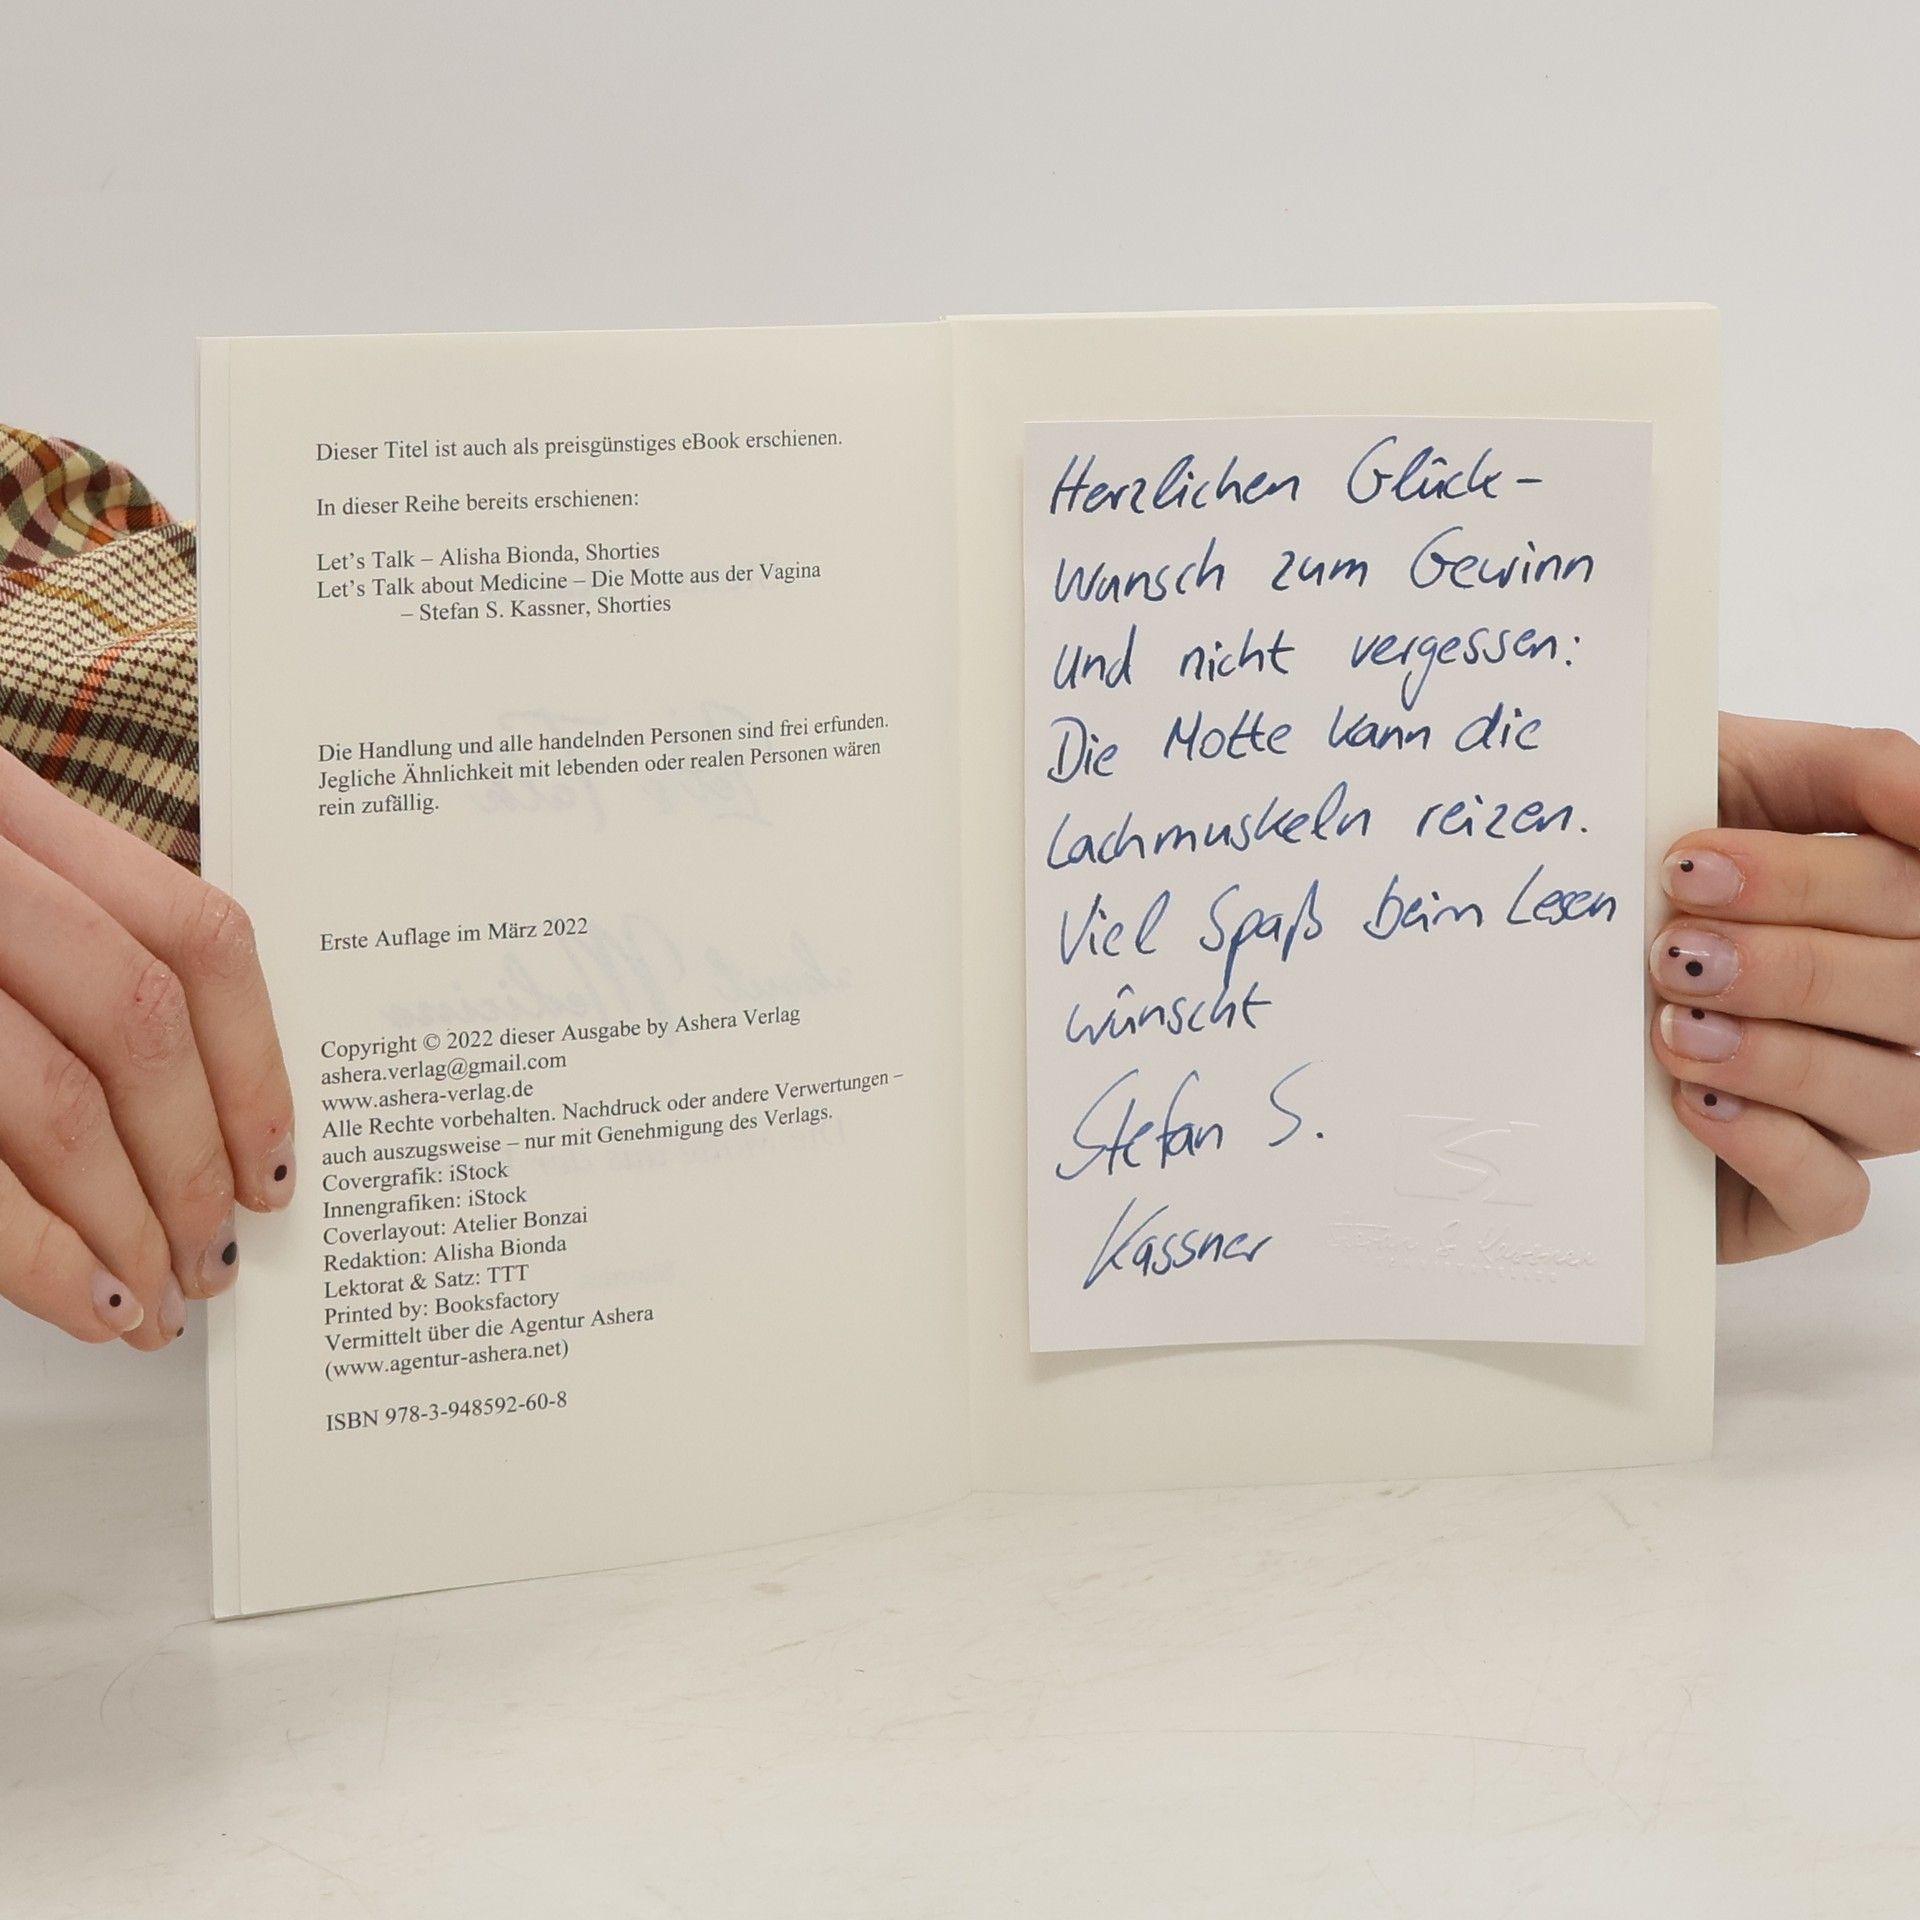 Dieser Titel ist auch als preisgünstiges eBook erschienen.
In dieser Reihe bereits erschienen:
Let's Talk – Alisha Bionda, Shorties
Let's Talk about Medicine – Die Motte aus der Vagina
– Stefan S. Kassner, Shorties
Die Handlung und alle handelnden Personen sind frei erfunden.
Jegliche Ähnlichkeit mit lebenden oder realen Personen wären
rein zufällig.
Erste Auflage im März 2022
Copyright © 2022 dieser Ausgabe by Ashera Verlag
ashera.verlag@gmail.com
www.ashera-verlag.de
Alle Rechte vorbehalten. Nachdruck oder andere Verwertungen –
auch auszugsweise – nur mit Genehmigung des Verlags.
Covergrafik: iStock
Innengrafiken: iStock
Coverlayout: Atelier Bonzai
Redaktion: Alisha Bionda
Lektorat & Satz: TTT
Printed by: Booksfactory
Vermittelt über die Agentur Ashera
(www.agentur-ashera.net)
ISBN 978-3-948592-60-8
Herzlichen Glück-
wunsch zum Gewinn
und nicht vergessen:
Die Motte kann die
Lachmuskeln reizen.
Viel Spaß beim Lesen
wünscht
Stefan S.
Kassner
Stefan S. Kassner